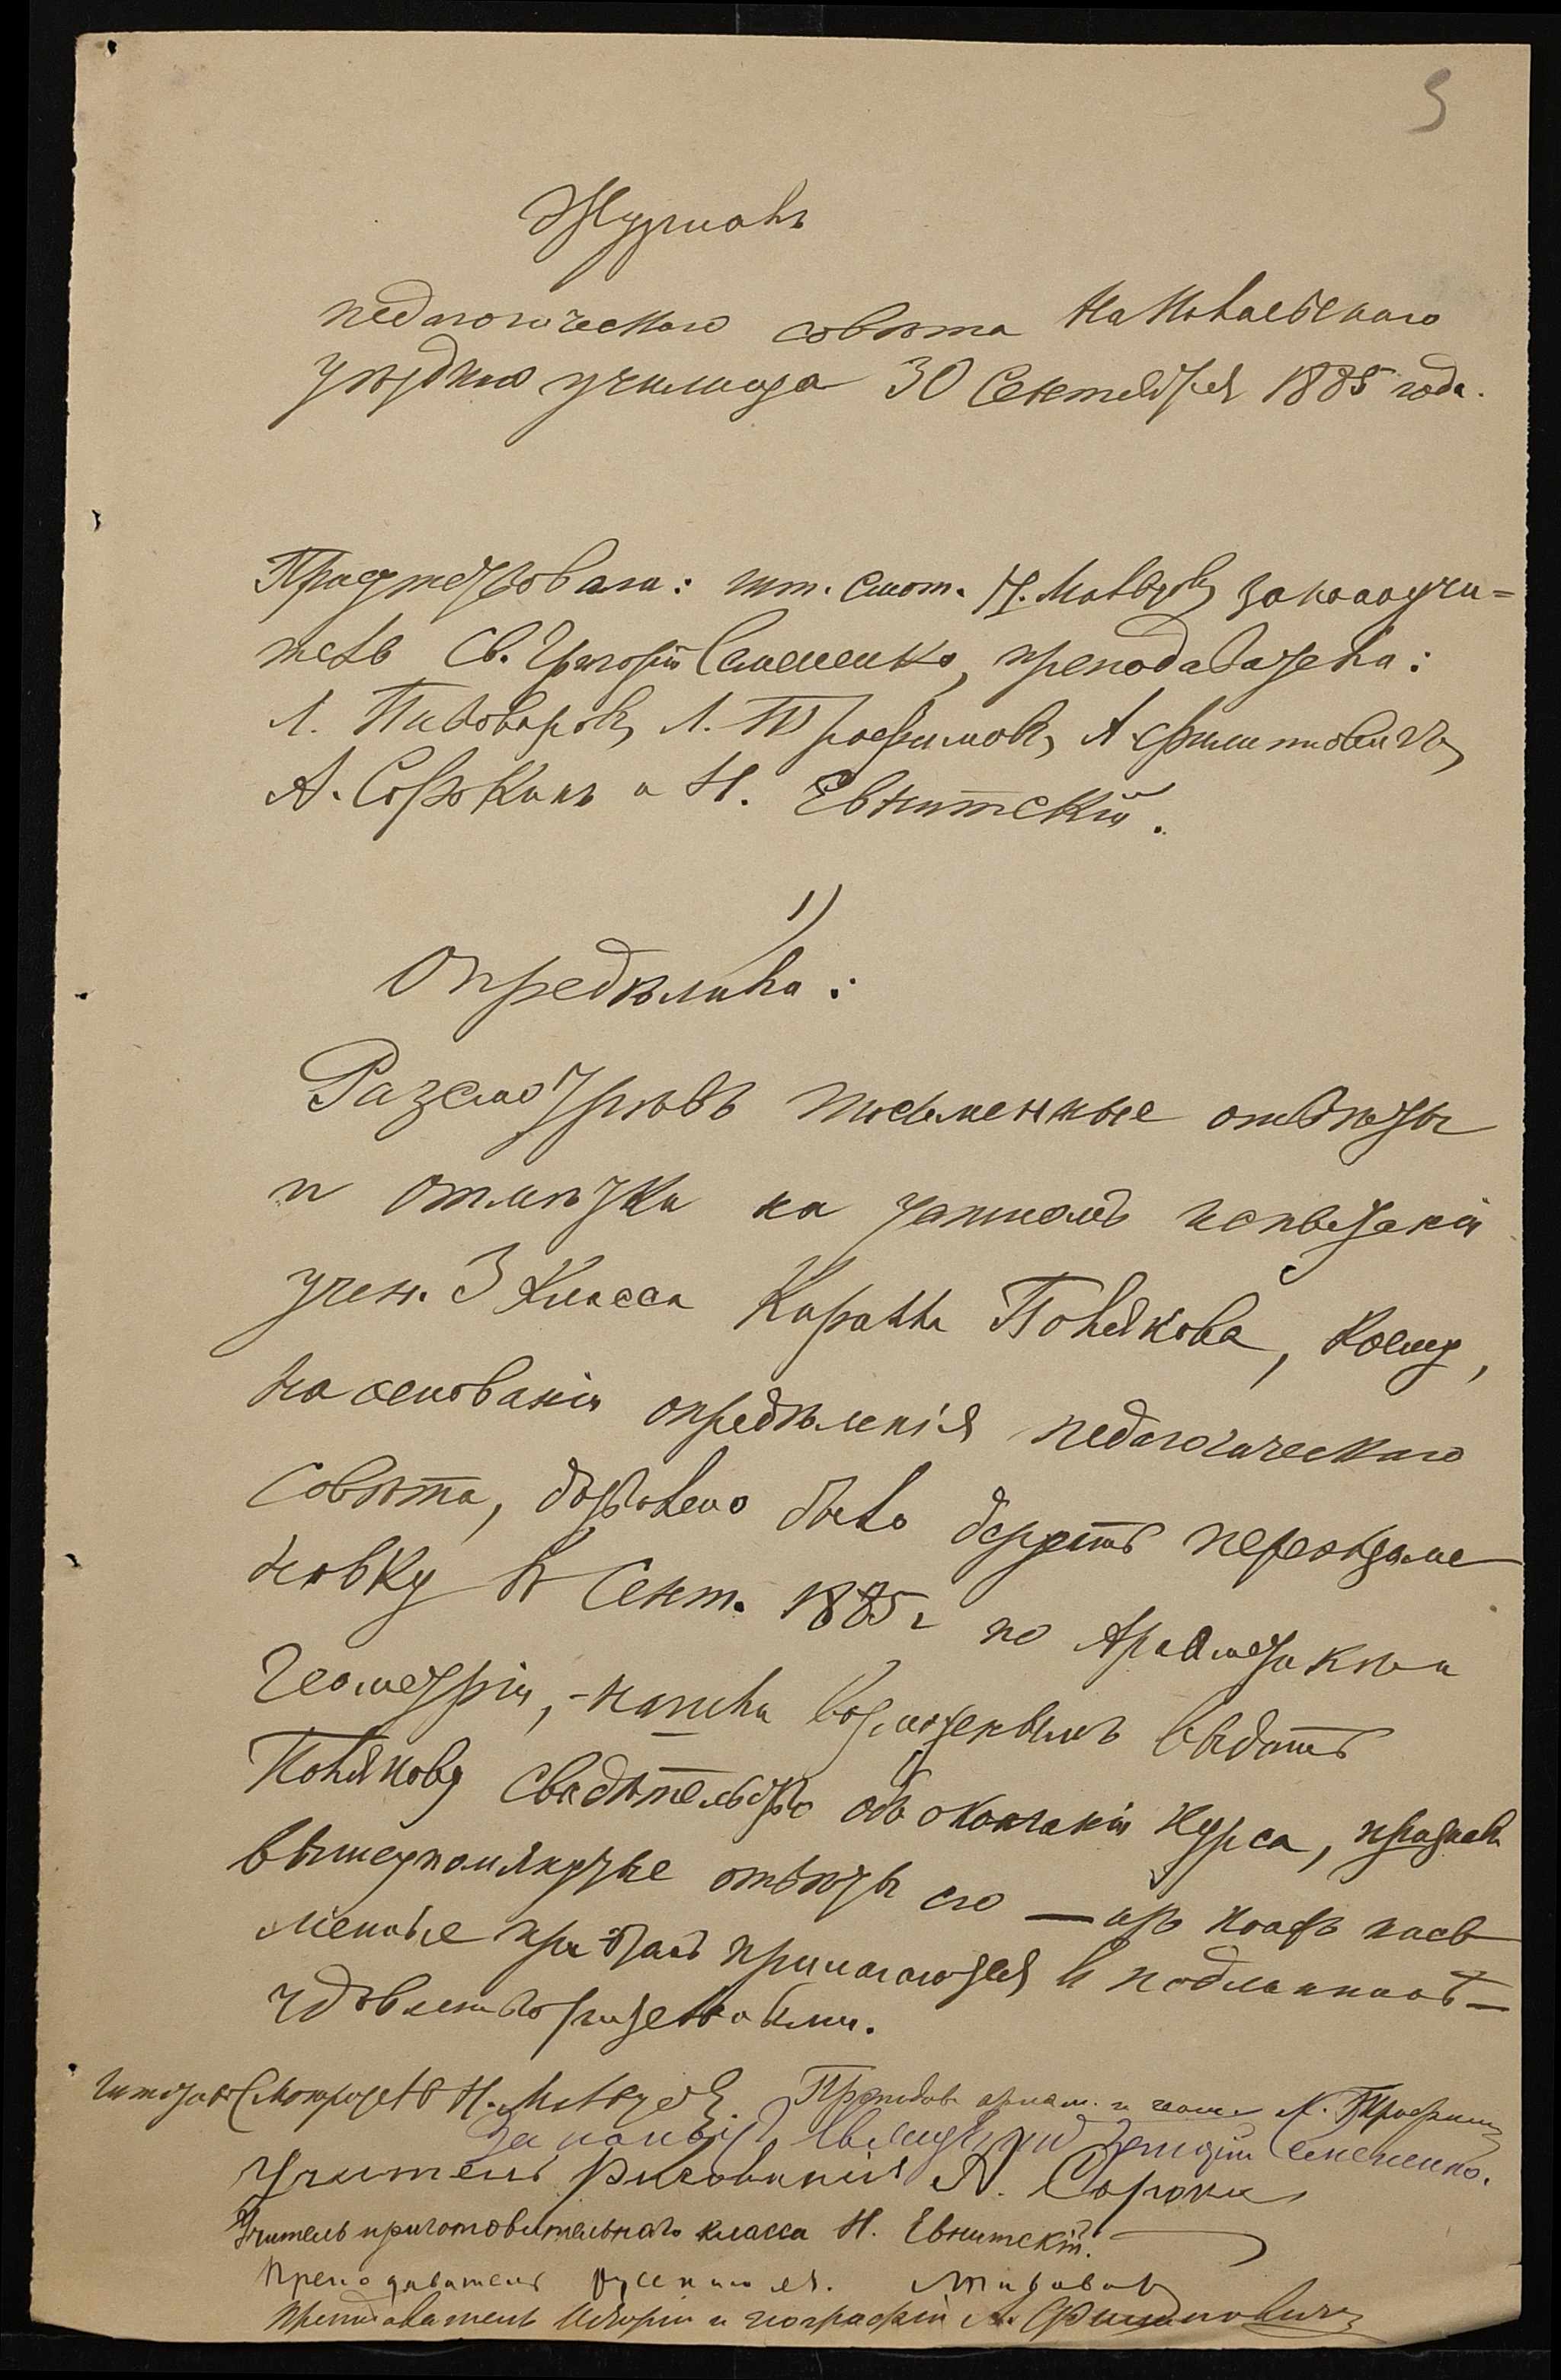 5
Журналъ
педагогическаго совѣта Николаевскаго
уѣзднаго училища 30 Сентября 1885 года.
Присутствовали: шт. смот. Н. законоучи-
тель Св. Григорій Семененко, преподаватели:
Л. Пивоваровъ, Л. Трофимовъ, А. Филиповичъ,
А. Сорокинъ и Н. Евнитскій.
1)
Опредѣлили:
Разсмотрѣвъ письменные отвѣты
и отмѣтки на устномъ испытаніи
учен. 3 класса Кирилла Полякова, коему,
на основаніи опредѣленія педагогическаго
Совѣта, дозволено было держать переэкзаме
новку въ Сент. 1885 г по Ариѳметикѣ и
Геометріи, - нашли возможнымъ выдать
Полякову свидѣтельство объ окончаніи курса, признавъ
вышеупомянутые отвѣты его — изъ коихъ пись
менные при семъ прилагаются въ подлинникѣ —
удовлетворительными.
Штатный Смотритель Н.
Преподав. ариѳм. и геом. Л. Трофимовъ
Законоуч. Священникъ Григорій Семененко.
Учитель рисованія А. Сорокинъ
Учитель приготовительнаго класса Н. Евнитскій.
Преподаватель русскаго яз. Пивоваровъ
Преподаватель Исторіи и географіи А. Филиповичъ